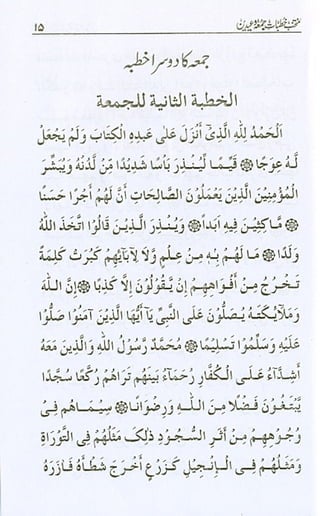 منتخب خطبات جمعہ وعیدین ۱۵
جمعہ کا دوسرا خطبہ
الخطبة الثانية للجمعة
اَلْحَمْدُ لِلّٰهِ الَّذِیْ اَنْزَلَ عَلٰی عَبْدِهِ الْكِتَابَ وَلَمْ يَجْعَلْ
لَّهُ عِوَجًا ۞ قَيِّمًا لِّيُنْذِرَ بَأْسًا شَدِيْدًا مِّنْ لَّدُنْهُ وَيُبَشِّرَ
الْمُؤْمِنِيْنَ الَّذِيْنَ يَعْمَلُوْنَ الصَّالِحَاتِ اَنَّ لَهُمْ اَجْرًا حَسَنًا
۞ مَّاكِثِيْنَ فِيْهِ اَبَداً ۞ وَيُنْذِرَ الَّذِيْنَ قَالُوْا اتَّخَذَ اللّٰهُ
وَلَدًا ۞ مَا لَهُمْ بِهٖ مِنْ عِلْمٍ وَّلَا لِاٰبَآئِهِمْ كَبُرَتْ كَلِمَةً
تَخْرُجُ مِنْ اَفْوَاهِهِمْ اِنْ يَّقُوْلُوْنَ اِلَّا كَذِبًا ۞ اِنَّ اللّٰهَ
وَمَلَآئِكَتَهُ يُصَلُّوْنَ عَلَى النَّبِيِّ يَآ اَيُّهَا الَّذِيْنَ آمَنُوْا صَلُّوْا
عَلَيْهِ وَسَلِّمُوْا تَسْلِيْمًا ۞ مُحَمَّدٌ رَّسُوْلُ اللّٰهِ وَالَّذِيْنَ مَعَهُ
اَشِدَّآءُ عَلَى الْكُفَّارِ رُحَمَآءُ بَيْنَهُمْ تَرَاهُمْ رُكَّعًا سُجَّدًا
يَّبْتَغُوْنَ فَضْلًا مِّنَ اللّٰهِ وَرِضْوَانًا ۞ سِيْمَاهُمْ فِيْ
وُجُوْهِهِمْ مِنْ اَثَرِ السُّجُوْدِ ذٰلِكَ مَثَلُهُمْ فِي التَّوْرَاةِ
وَمَثَلُهُمْ فِي الْاِنْجِيْلِ كَزَرْعٍ اَخْرَجَ شَطْأَهُ فَآزَرَهُ